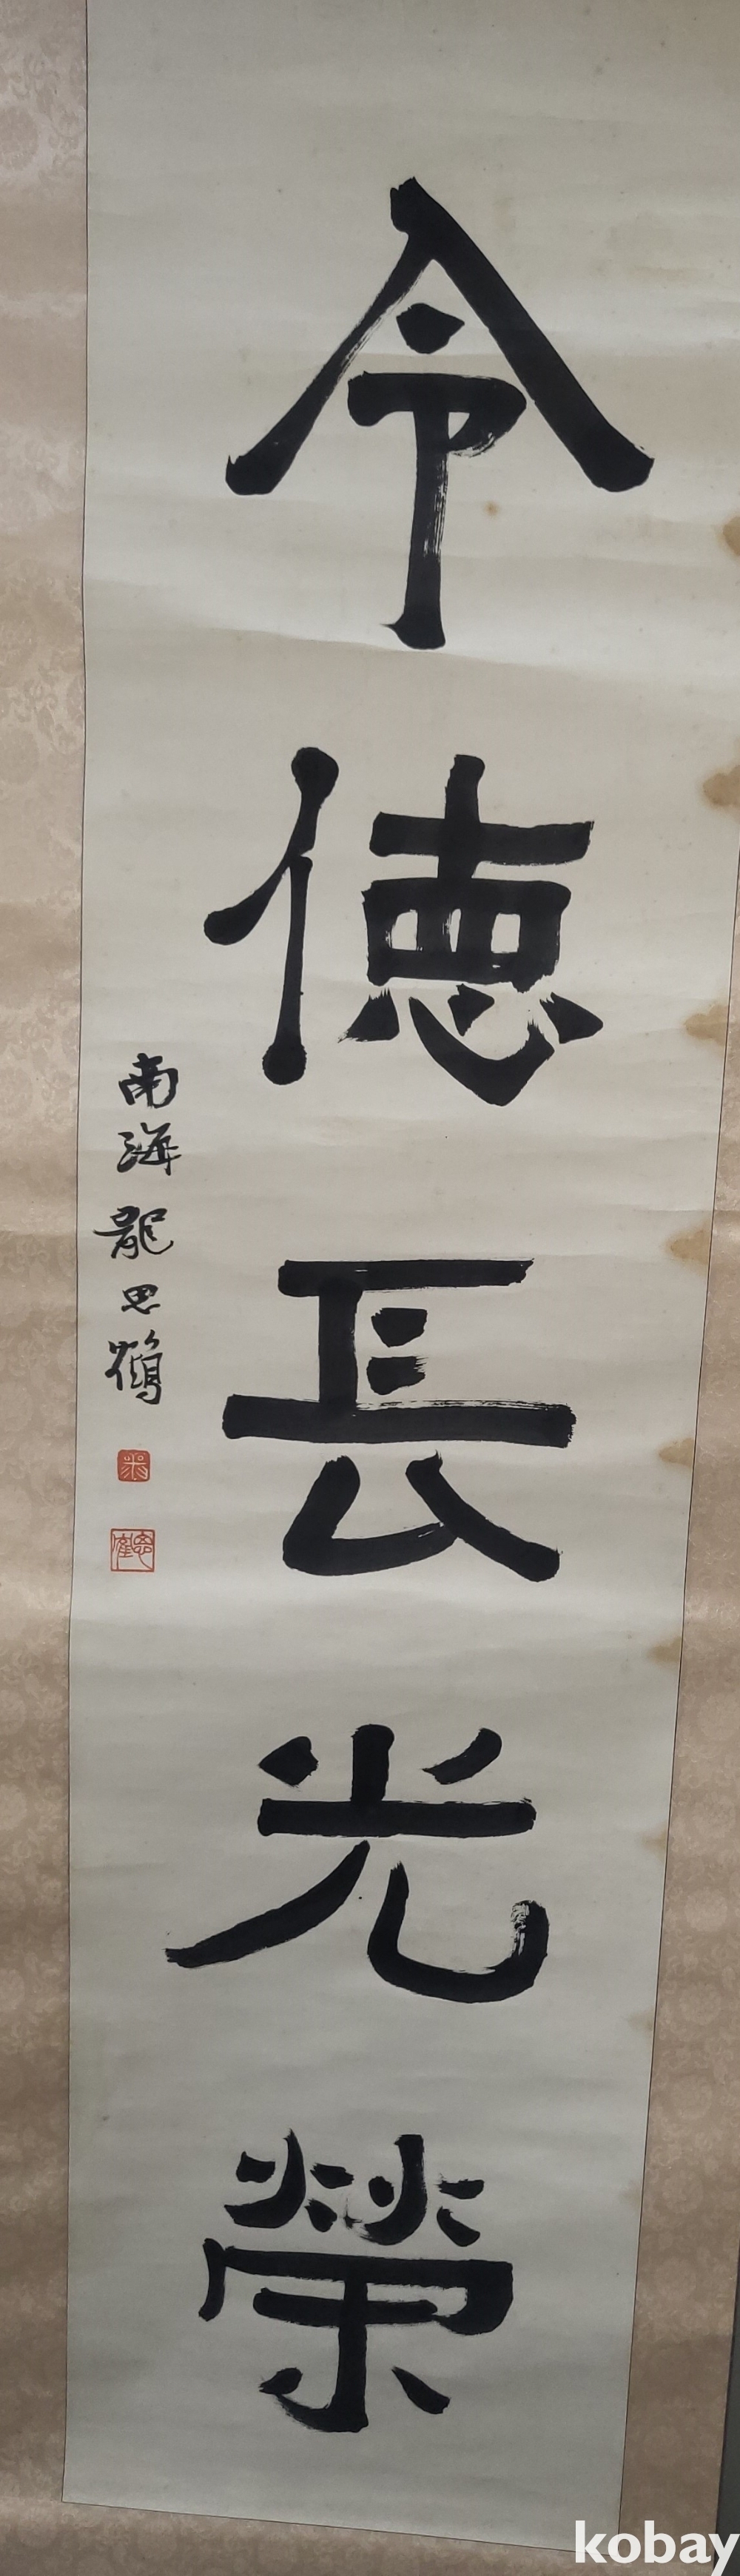 令德長光榮
南海龍思鶴
kobay